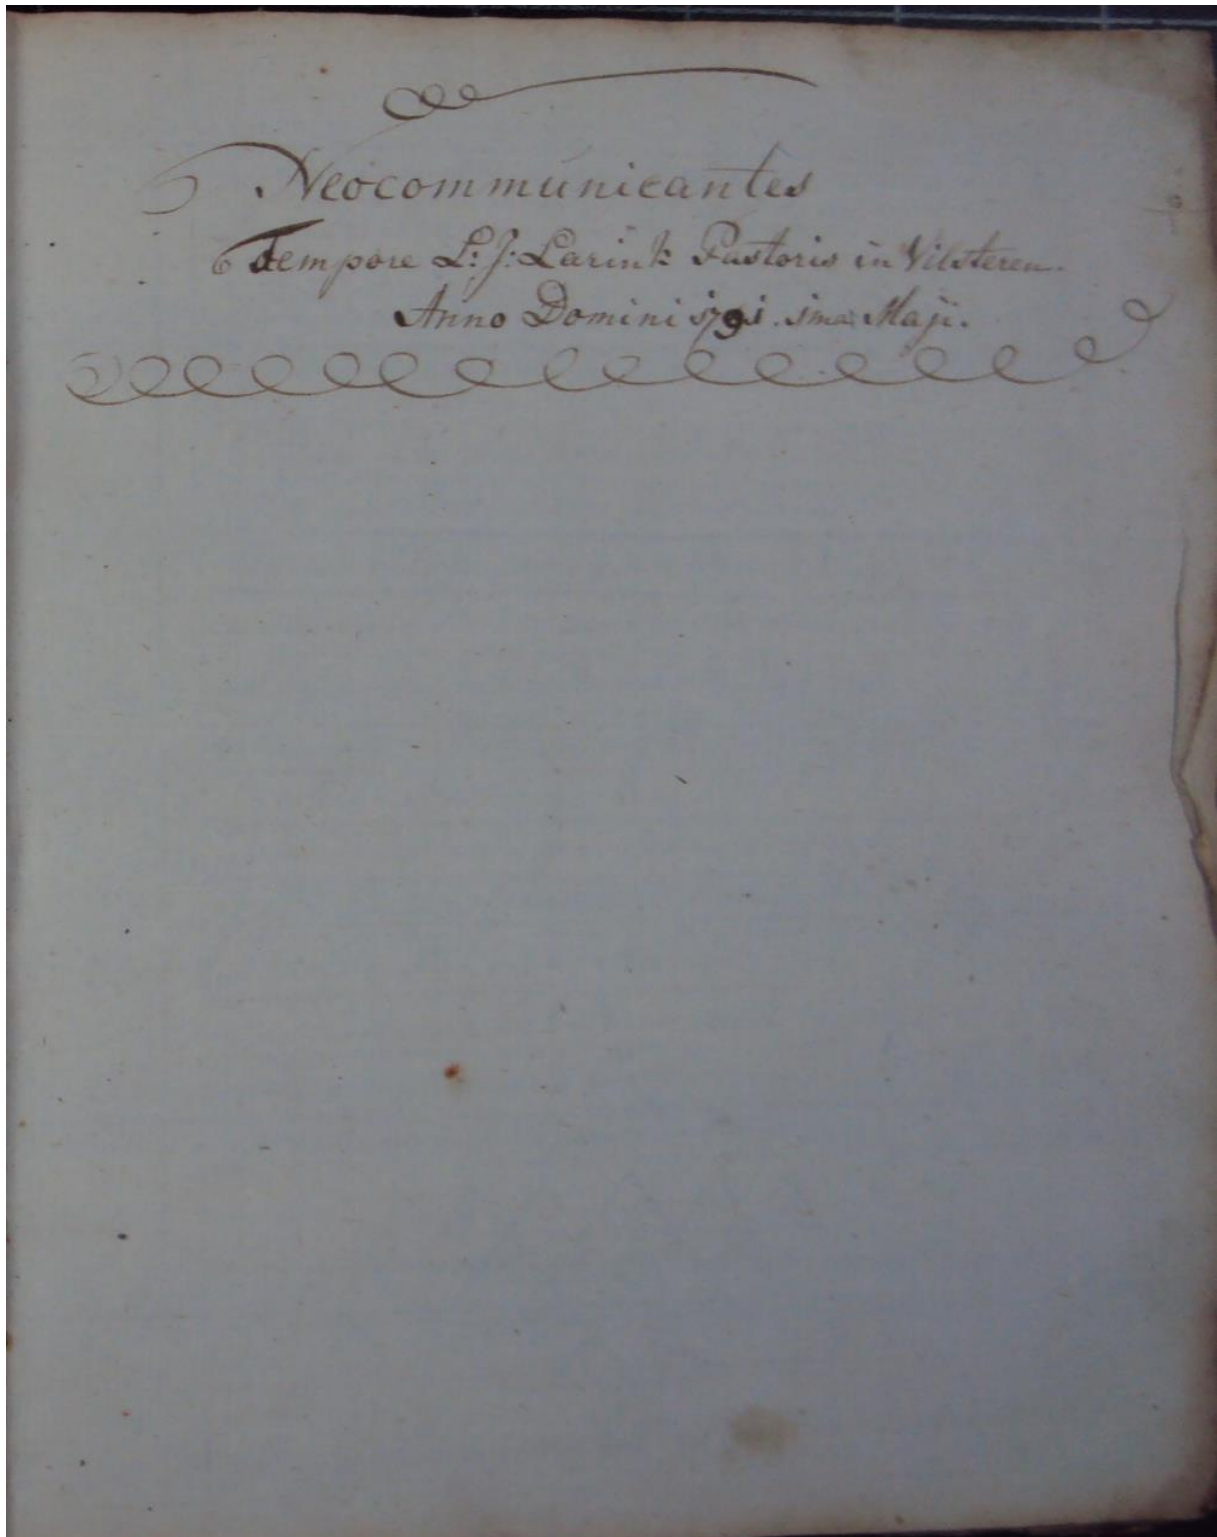 Neocommunicantes
Tempore L: J: Larink Pastoris in Vilsteren.
Anno Domini 1791. 1ma Maji.